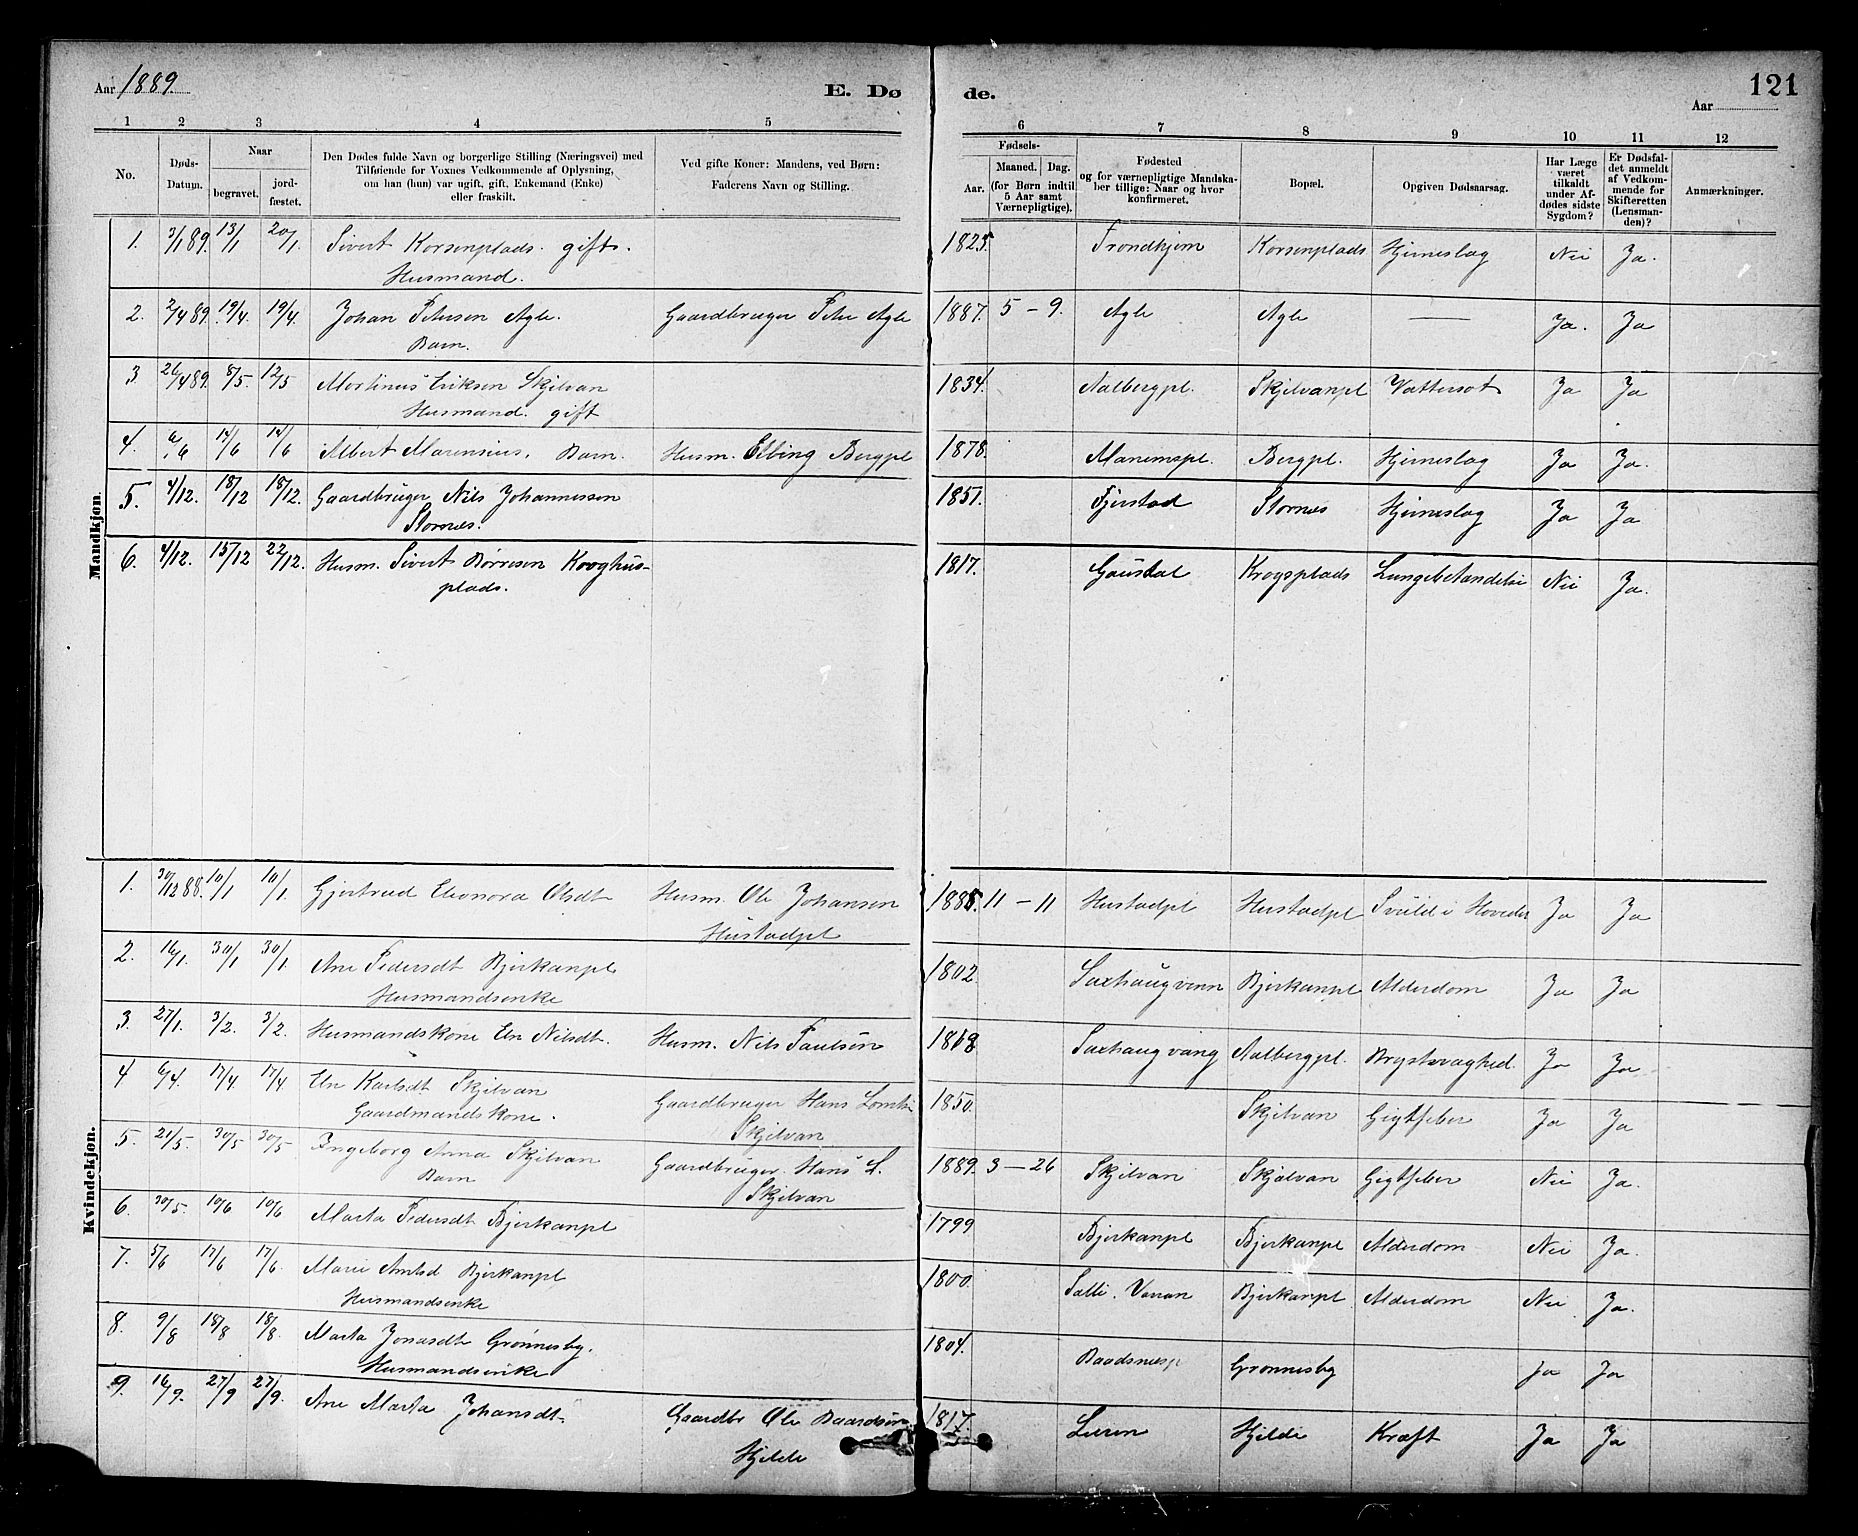 Aar 1889.
E. Dø
de.
121
Aar
1 2 3 4 5 6 7 8 9 10 11 12
No.
Døds-Datum.
Naar
begravet.
jord-fæstet.
Den Dødes fulde Navn og borgerlige Stilling (Næringsvei) med
Tilføiende for Voxnes Vedkommende af Oplysning,
om han (hun) var ugift, gift, Enkemand (Enke)
eller fraskilt.
Ved gifte Koner: Mandens, ved Børn:
Faderens Navn og Stilling.
Fødsels-
Aar.
Maaned. Dag.
(for Børn indtil
5 Aar samt
Værnepligtige).
Fødested
og for værnepligtige Mandska-
ber tillige: Naar og hvor
konfirmeret.
Bopæl.
Opgiven Dødsaarsag.
Har Læge
været
tilkaldt
under Af-
dødes sidste
Sygdom?
Er Dødsfal-
det anmeldt
af Vedkom-
mende for
Skifteretten
(Lensman-
den)?
Anmærkninger.
Mandkjøn.
1. 3/1 89. 13/1 20/1. Sivert Korsenplads. gift. 1825. Trondhjem Korsenplads Hjerneslag Nei Ja.
Husmand.
2. 2/4 89. 19/4. 19/4. Johan Petersen Agle. Gaardbruger Peter Agle 1887. 5 - 9. Agle Agle — Ja. Ja
Barn.
3. 26/4 89. 8/5. 12/5 Martinus Eriksen Skjelvan 1834. Aalbergpl. Skjelvanpl Vattersot Ja Ja
Husmand. gift
4. 6/6 14/6 14/6 Albert Marensius. Barn. Husm. Elling Bergpl 1878. Manemspl. Bergpl. Hjerneslag Ja Ja.
5. 4/12. 18/12 18/12. Gaardbruger Nils Johannessen 1851. Fjerstad Stornes Hjerneslag Ja Ja
Stornes.
6. 4/12. 15/12 22/12. Husm. Sivert Børresen Kroghus- 1817. Gaustad Krogsplads Lungebetændelse Nei Ja.
plads.
Kvindekjøn.
1. 30/12 88. 10/1 10/1. Gjertrud Eleonora Olsdt Husm. Ole Johansen 1888. 11 - 11 Hustadpl Hustadpl Svuld i Hovedet Ja Ja
Hustadpl
2. 16/1. 30/1 30/1. Ane Pedersdt Bjerkanpl 1802. Saxhaugvenn Bjerkanpl Alderdom Ja Ja
Husmandsenke
3. 27/1. 3/2. 3/2. Husmandskone Eln Nilsdt. Husm. Nils Paulsen 1818 Saxhaugvang Aalbergpl. Brystsvaghed. Ja Ja
4 6/4. 17/4 17/4 Eln Karlsdt Skjelvan Gaardbruger Hans 1850. Skjelvan Gigtfeber Ja Ja
Gaardmandskone. Skjelvan
5. 21/5. 30/5 30/5 Ingeborg Anna Skjelvan Gaardbruger Hans L. 1889. 3 - 26 Skjelvan Skjelvan Gigtfeber Nei Ja.
Barn Skjelvan
6. 30/5. 10/6 10/6 Marta Pedersdt Bjerkanpl 1799 Bjerkanpl Bjerkanpl Alderdom Nei Ja.
7. 5/6 17/6 17/6. Marie Arntsd Bjerkanpl 1800. Salli. Vanan Bjerkanpl Alderdom Nei Ja.
Husmandsenke
8. 9/8 18/8 18/8. Marta Jonasdt Grønnesby. 1804. Baadsnesp Grønnesby Ja Ja
Husmandsenke
9. 16/9. 27/9 27/9. Ane Marta Johansdt Gaardbr Ole Baardsen 1817. Leren Hjelde Kræft Ja Ja
Hjelde